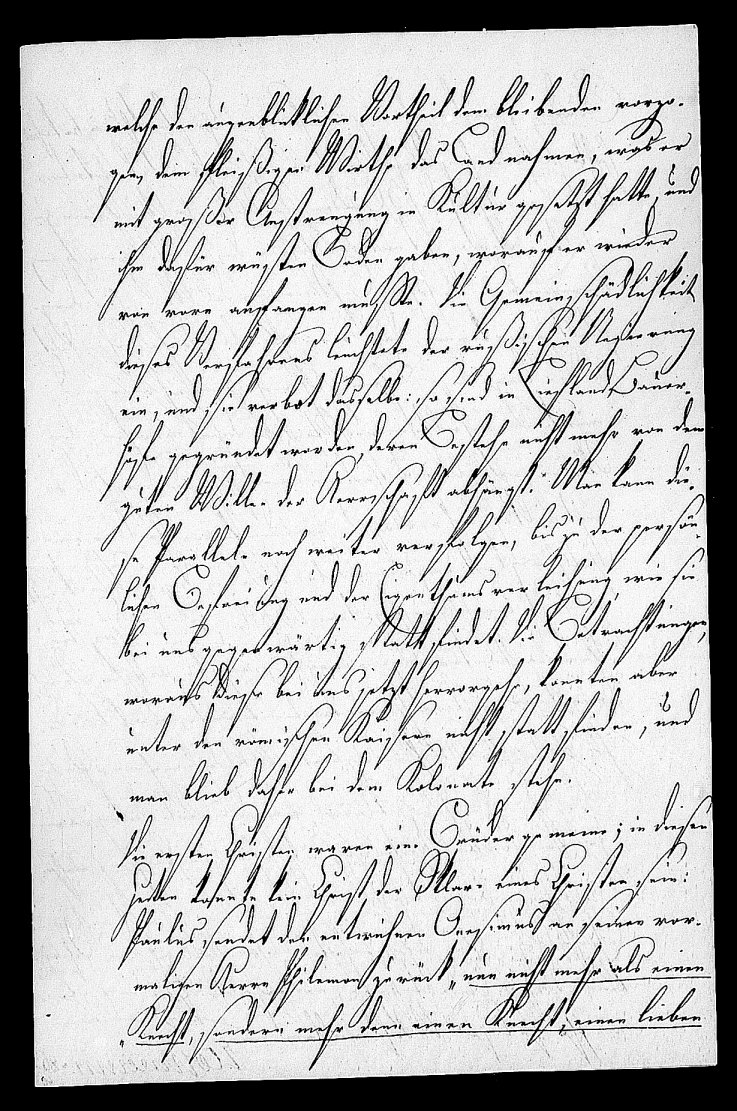 welche den augenblicklichen Vortheil dem bleibenden vorzo-
gen, dem fleißigen Wirthe das Land nahmen, was er
mit großer Anstrengung in Kultur gesetzt hatte, und
ihm dafür wüsten Boden gaben, worauf er wieder
von vorn anfangen mußte. Die Gemeinschädlichkeit
dieses Verfahrens leuchtete der rußischen Regierung
ein, und sie verbot dasselbe: so sind in Liefland Bauer-
höfe gegründet worden, deren Bestehn nicht mehr von dem
guten Willen der Herrschaft abhängt. Man kann die-
se Parallele noch weiter verfolgen, bis zu der persön-
lichen Befreiung und der Eigenthumsverleihung, wie sie
bei uns gegenwärtig statt findet. Die Betrachtungen,
woraus diese bei uns jetzt hervorgehn, konnten aber
unter den römischen Kaisern nicht statt finden, und
man blieb daher bei dem Kolonate stehn.
Die ersten Christen waren eine Brüdergemeine; in diesen
Zeiten konnte kein Christ der Sklave eines Christen sein:
Paulus sendet den entwichnen Onesimus an seinen vor-
maligen Herrn Philemon zurück „nun nicht mehr als einen
„Knecht, sondern mehr denn einen Knecht, einen lieben